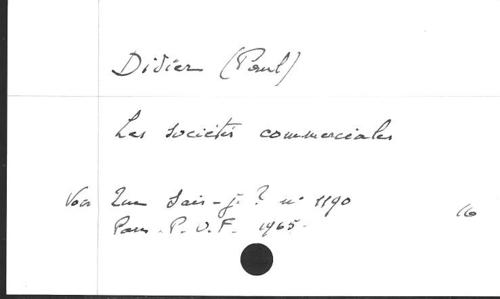 Didier (Paul)
Les sociétés commerciales
Voir Que Sais-je ? n° 1190
Paris. P. U. F. 1965.
16